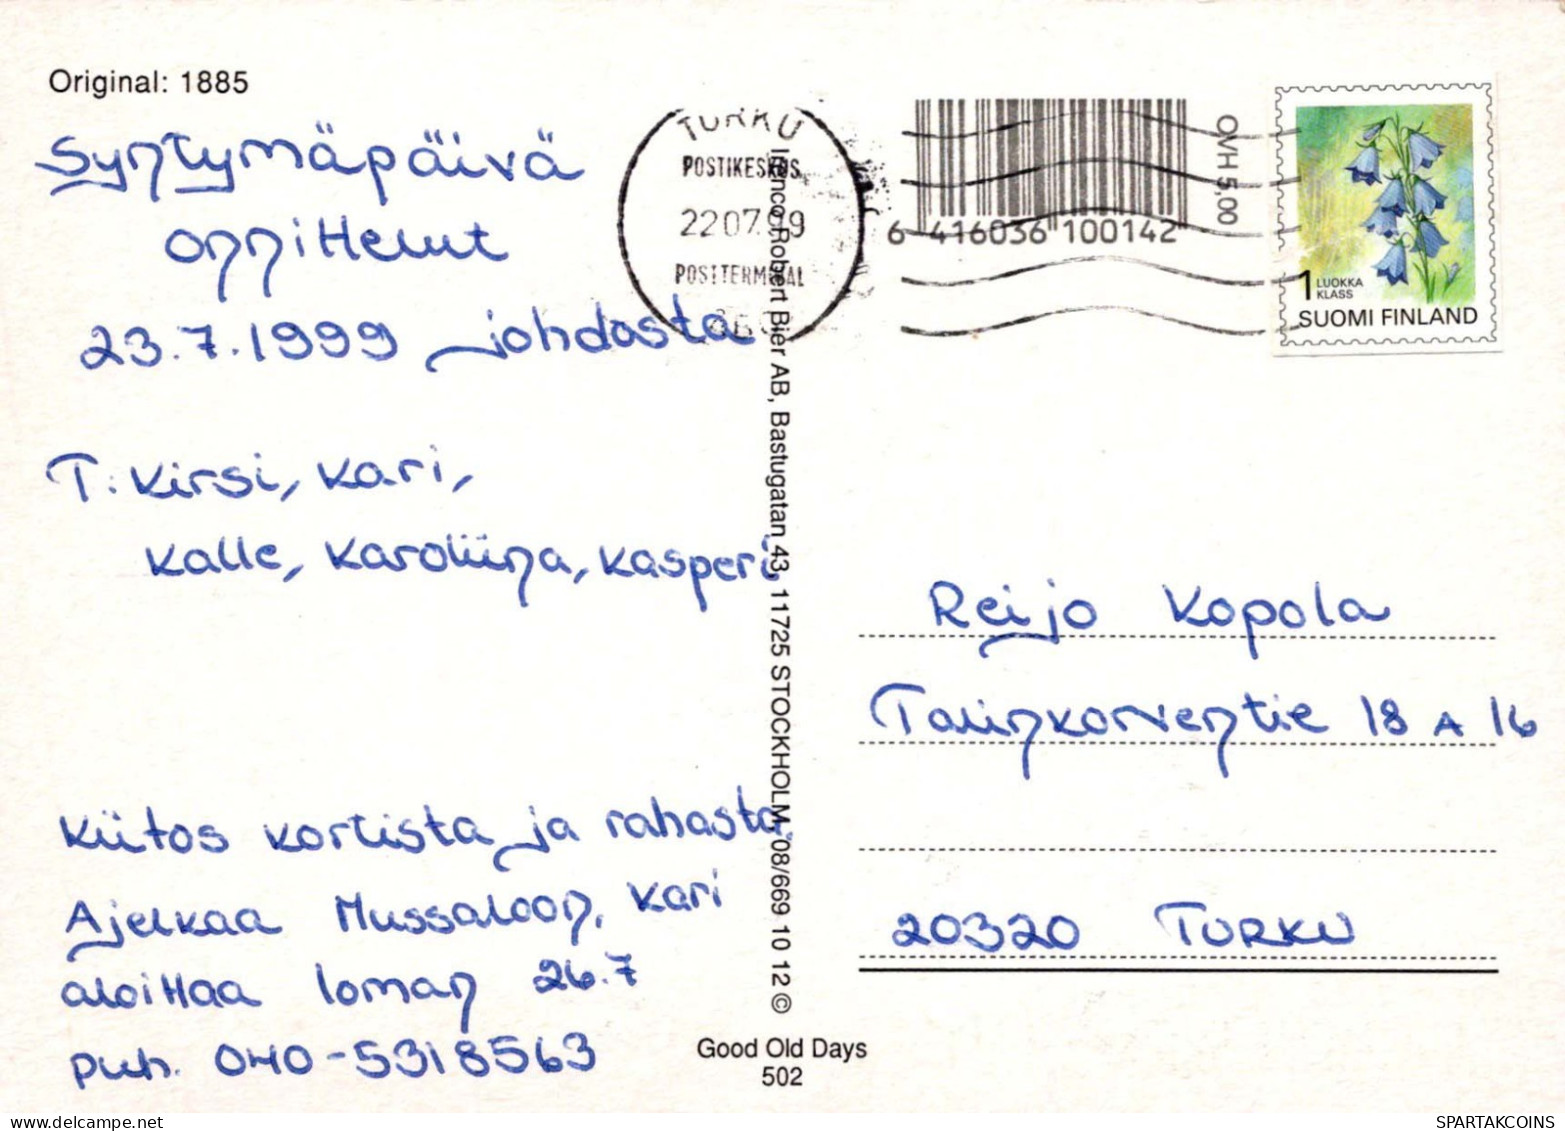 Original: 1885
Syntymäpäivä
onnittelut
23.7.1999 johdosta
T. Kirsi, Kari,
Kalle, Karoliina, Kasperi
Kiitos kortista ja rahasta.
Ajelkaa Mussaloon, Kari
aloittaa loman 26.7
puh. 040-5318563
Good Old Days
502
Irenco Robert Bier AB, Bastugatan 43, 11725 STOCKHOLM, 08/669 10 12 ©
TURKU
POSTIKESKUS
22.07.99
POSTTERMINAL
6 416036 100142
OVH 5,00
1 LUOKKA
KLASS
SUOMI FINLAND
Reijo Kopola
Talinkorventie 18 A 16
20320 TURKU
SPARTAKCOINS